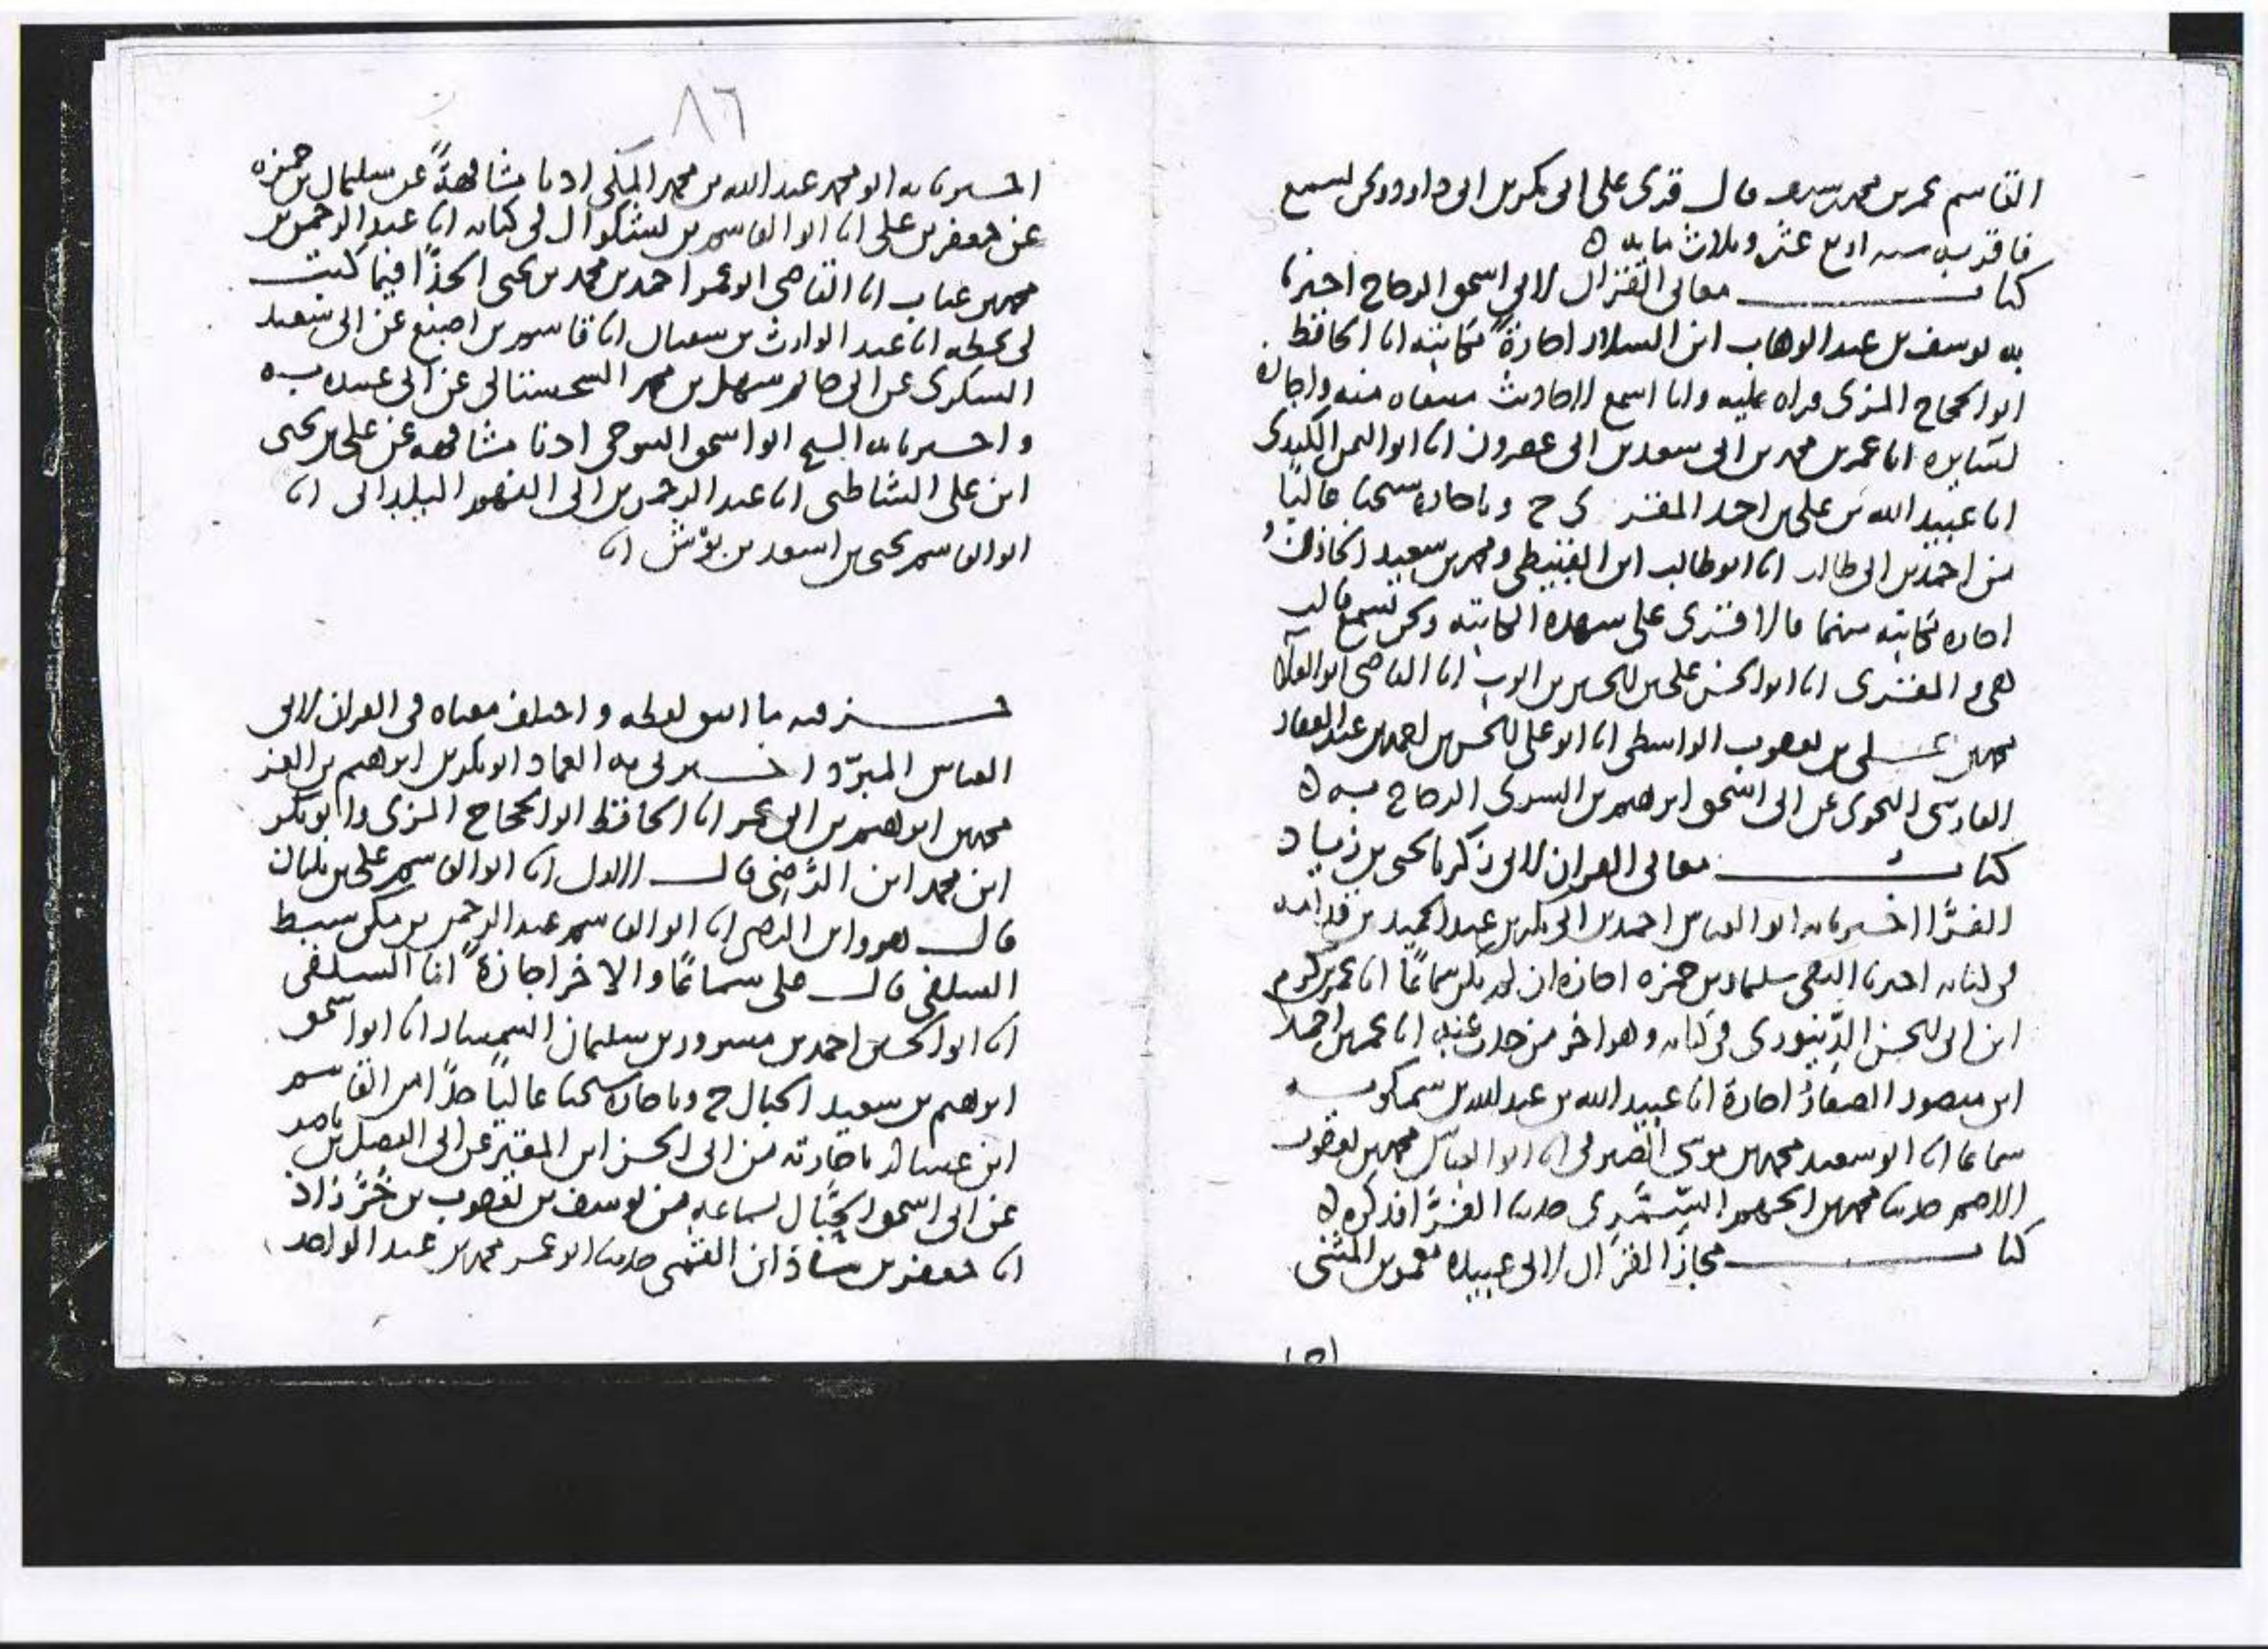 القاسم عمر بن محمد بن سيف قال قرئ على ابي بكر بن ابي داوود ونحن نسمع
فاقر به سنه اربع عشر وثلاث مايه
كتاب معاني القران لابي اسحق الزجاج اخبرنا
به يوسف بن عبد الوهاب ابن السلار اجازة مكاتبه انا الحافظ
ابو الحجاج المزي قراه عليه وانا اسمع لاحاديث منتقاه منه واجازه
لسايره انا عمر بن محمد بن ابي سعد بن ابي عصرون انا ابو اليمن الكندي
انا عبيد الله بن علي بن احمد المقـرئ ح وباجازه شيخنا عاليا
من احمد بن ابي طالب انا ابو طالب ابن القبيطي ومحمد بن سعيد الخازن
اجازه مكاتبه منهما قالا قرئ على شهده الكاتبه ونحن نسمع قالت
هي والمقرئ انا ابو الحسن علي بن الحسين بن ايوب انا القاضي ابو العلا
محمد بن علي بن يعقوب الواسطي انا ابو علي الحسن بن احمد بن عبد الغفار
الفارسي النحوي عن ابي اسحق ابرهيم بن السري الزجاج به
كتاب معاني القران لابي زكريا يحيى بن زياد
الفرا اخبرنا به ابو العباس احمد بن ابي بكر بن عبد الحميد بن قدامه
في كتابه اخبرنا التقي سليمان بن حمزه اجازه ان لم يكن سماعا انا عمر بن كرم
ابن ابي الحسن الدينوري في كتابه وهو اخر من حدث عنه انا عمر بن احمد
ابن منصور الصفار اجازة انا عبيد الله بن عبد الله بن سمكويه
سماعا انا ابو سعيد محمد بن موسى الصيرفي انا ابو العباس محمد بن يعقوب
الاصم حدثنا محمد بن الجهم السمري حدثنا الفرا فذكره
كتاب مجاز القران لابي عبيده معمر بن المثنى
٨٦
اخبرنا به ابو محمد عبد الله بن محمد المكي اذنا مشافهة عن سليمان بن حمزه
عن جعفر بن علي انا ابو القاسم بن بشكوال في كتابه انا عبد الرحمن بن
محمد بن عتاب انا القاضي ابو عمر احمد بن محمد بن يحيى الحذا فيما كتب
لي بخطه انا عبد الوارث بن سفيان انا قاسم بن اصبغ عن ابي سعيد
السكري عن ابي حاتم سهل بن محمد السجستاني عن ابي عبيده به
واخبرنا به الشيخ ابو اسحق التنوخي اذنا مشافهه عن علي بن يحيى
ابن علي الشاطبي انا عبد الرحمن بن ابي الفهم البلداني انا
ابو القاسم يحيى بن اسعد بن بوش انا
جزء فيه ما اتفق لفظه واختلف معناه في القران لابي
العباس المبرد اخبرني به العماد ابو بكر بن ابرهيم بن العز
محمد بن ابرهيم بن ابي عمر انا الحافظ ابو الحجاج المزي وابو بكر
ابن محمد ابن الرضي قال الاول انا ابو القاسم علي بن بلبان
قال هو وابن الرضي انا ابو القاسم عبد الرحمن بن مكي سبط
السلفي قال علي سماعا والاخر اجازة انا السلفي
انا ابو الحسن احمد بن مسرور بن سليمان انا ابو اسحق
ابرهيم بن سعيد الحبال ح وباجازه شيخنا عاليا جدا من القاسم
ابن عساكر باجازته من ابي الحسن ابن المقير عن ابي الفضل بن ناصر
عن ابي اسحق الحبال لسماعه من يوسف بن يعقوب بن خرزاذ
انا جعفر بن شاذان القمي حدثنا ابو عمر محمد بن عبد الواحد